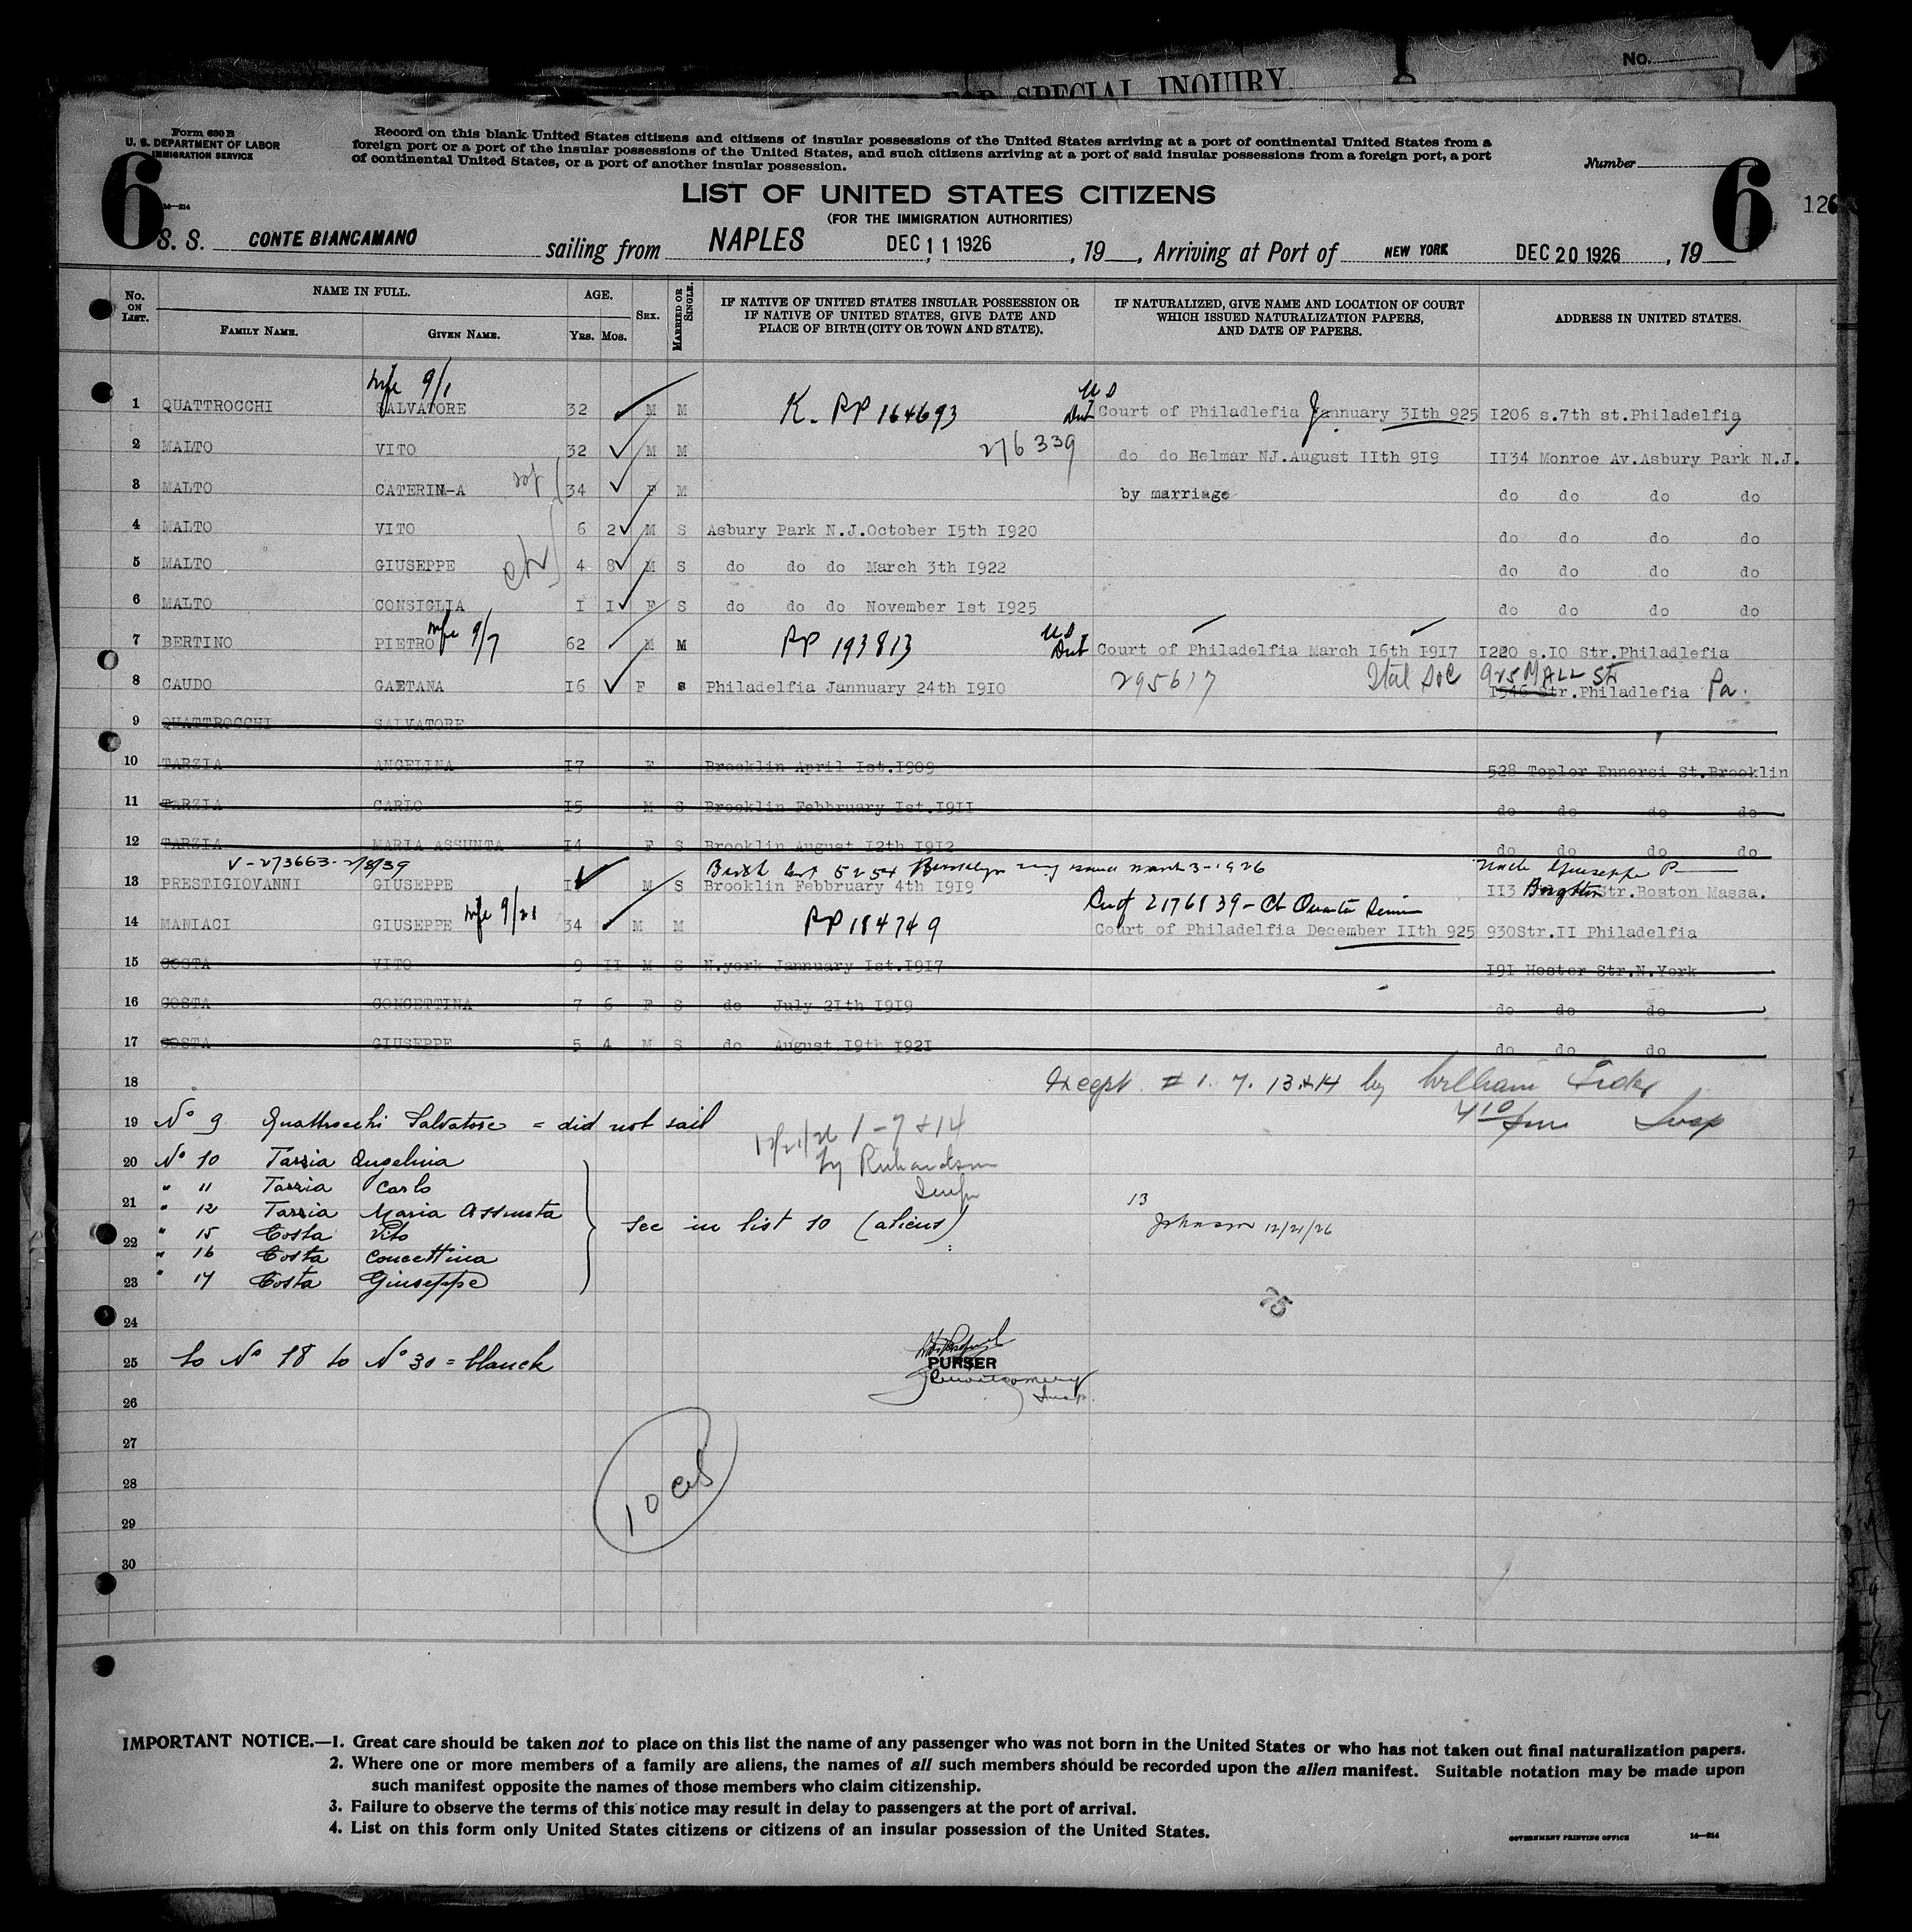 No.
FOR SPECIAL INQUIRY.
Form 630 B
U. S. DEPARTMENT OF LABOR
IMMIGRATION SERVICE
14—214
Record on this blank United States citizens and citizens of insular possessions of the United States arriving at a port of continental United States from a
foreign port or a port of the insular possessions of the United States, and such citizens arriving at a port of said insular possessions from a foreign port, a port
of continental United States, or a port of another insular possession.
Number
6
6
126
LIST OF UNITED STATES CITIZENS
(FOR THE IMMIGRATION AUTHORITIES)
S. S. CONTE BIANCAMANO sailing from NAPLES DEC 11 1926, 19 , Arriving at Port of NEW YORK DEC 20 1926, 19
No. ON LIST.
NAME IN FULL.
FAMILY NAME. GIVEN NAME.
AGE.
YRS. MOS.
SEX.
MARRIED OR SINGLE.
IF NATIVE OF UNITED STATES INSULAR POSSESSION OR
IF NATIVE OF UNITED STATES, GIVE DATE AND
PLACE OF BIRTH (CITY OR TOWN AND STATE).
IF NATURALIZED, GIVE NAME AND LOCATION OF COURT
WHICH ISSUED NATURALIZATION PAPERS,
AND DATE OF PAPERS.
ADDRESS IN UNITED STATES.
9/1 U S
1 QUATTROCCHI SALVATORE 32 M M K. PP 164693 Court of Philadlefia Jannuary 3Ith 925 I206 s.7th st.Philadelfia
2 MALTO VITO 32 M M 276339 do do Belmar NJ.August IIth 9I9 II34 Monroe Av.Asbury Park N.J.
3 MALTO CATERIN-A 34 F M by marriage do do do do
4 MALTO VITO 6 2 M S Asbury Park N.J.October I5th I920 do do do do
5 MALTO GIUSEPPE 4 8 M S do do do March 3th I922 do do do do
6 MALTO CONSIGLIA I I F S do do do November Ist I925 do do do do
7 BERTINO PIETRO 9/7 62 M M PP 193813 U S Court of Philadelfia March I6th I9I7 I220 s.IO Str.Philadlefia
8 CAUDO GAETANA I6 F s Philadelfia Jannuary 24th I9I0 295617 Ital Soc 925 MALL St
I546 Str.Philadlefia Pa.
9 QUATTROCCHI SALVATORE
10 TARZIA ANGELINA I7 F Brooklin April Ist.I909 528 Toplor Ennersi St.Brooklin
11 TARZIA CARLO I5 M S Brooklin Febbruary Ist.I9II do do do do
12 TARZIA MARIA ASSUNTA I4 F S Brooklin August I2th I9I2 do do do do
V-273663-2/8/39 Birth 5254 Brooklyn issued March 3-1926 Uncle Giuseppe P
13 PRESTIGIOVANNI GIUSEPPE M S Brooklin Febbruary 4th I9I9 II3 Str.Boston Massa.
2176139
14 MANIACI GIUSEPPE 9/21 34 M M PP 184749 Court of Philadelfia December IIth 925 930Str.II Philadelfia
15 COSTA VITO 9 II M S N.york Jannuary Ist.I9I7 I9I Hoster Str.N.York
16 COSTA CONCETTINA 7 6 F S do July 2Ith I9I9 do do do
17 COSTA GIUSEPPE 5 4 M S do August I9th I92I do do do
18 Except # 1. 7. 13 & 14 by William
19 No 9 Quattrocchi Salvatore = did not sail
12/21/26 1-7 & 14
by Richardson
Insp
20 No 10 Tarzia Angelina
" 11 Tarzia Carlo
21 " 12 Tarzia Maria Assunta
" 15 Costa Vito
22 " 16 Costa Concettina
23 " 17 Costa Giuseppe
see in list 10 (aliens)
13
Johnson 12/21/26
25
24
25 to No 18 to No 30 = blanck
PURSER
Insp.
26
27
28
29
30
10 cit
IMPORTANT NOTICE.—1. Great care should be taken not to place on this list the name of any passenger who was not born in the United States or who has not taken out final naturalization papers.
2. Where one or more members of a family are aliens, the names of all such members should be recorded upon the alien manifest. Suitable notation may be made upon
such manifest opposite the names of those members who claim citizenship.
3. Failure to observe the terms of this notice may result in delay to passengers at the port of arrival.
4. List on this form only United States citizens or citizens of an insular possession of the United States.
GOVERNMENT PRINTING OFFICE 14—214